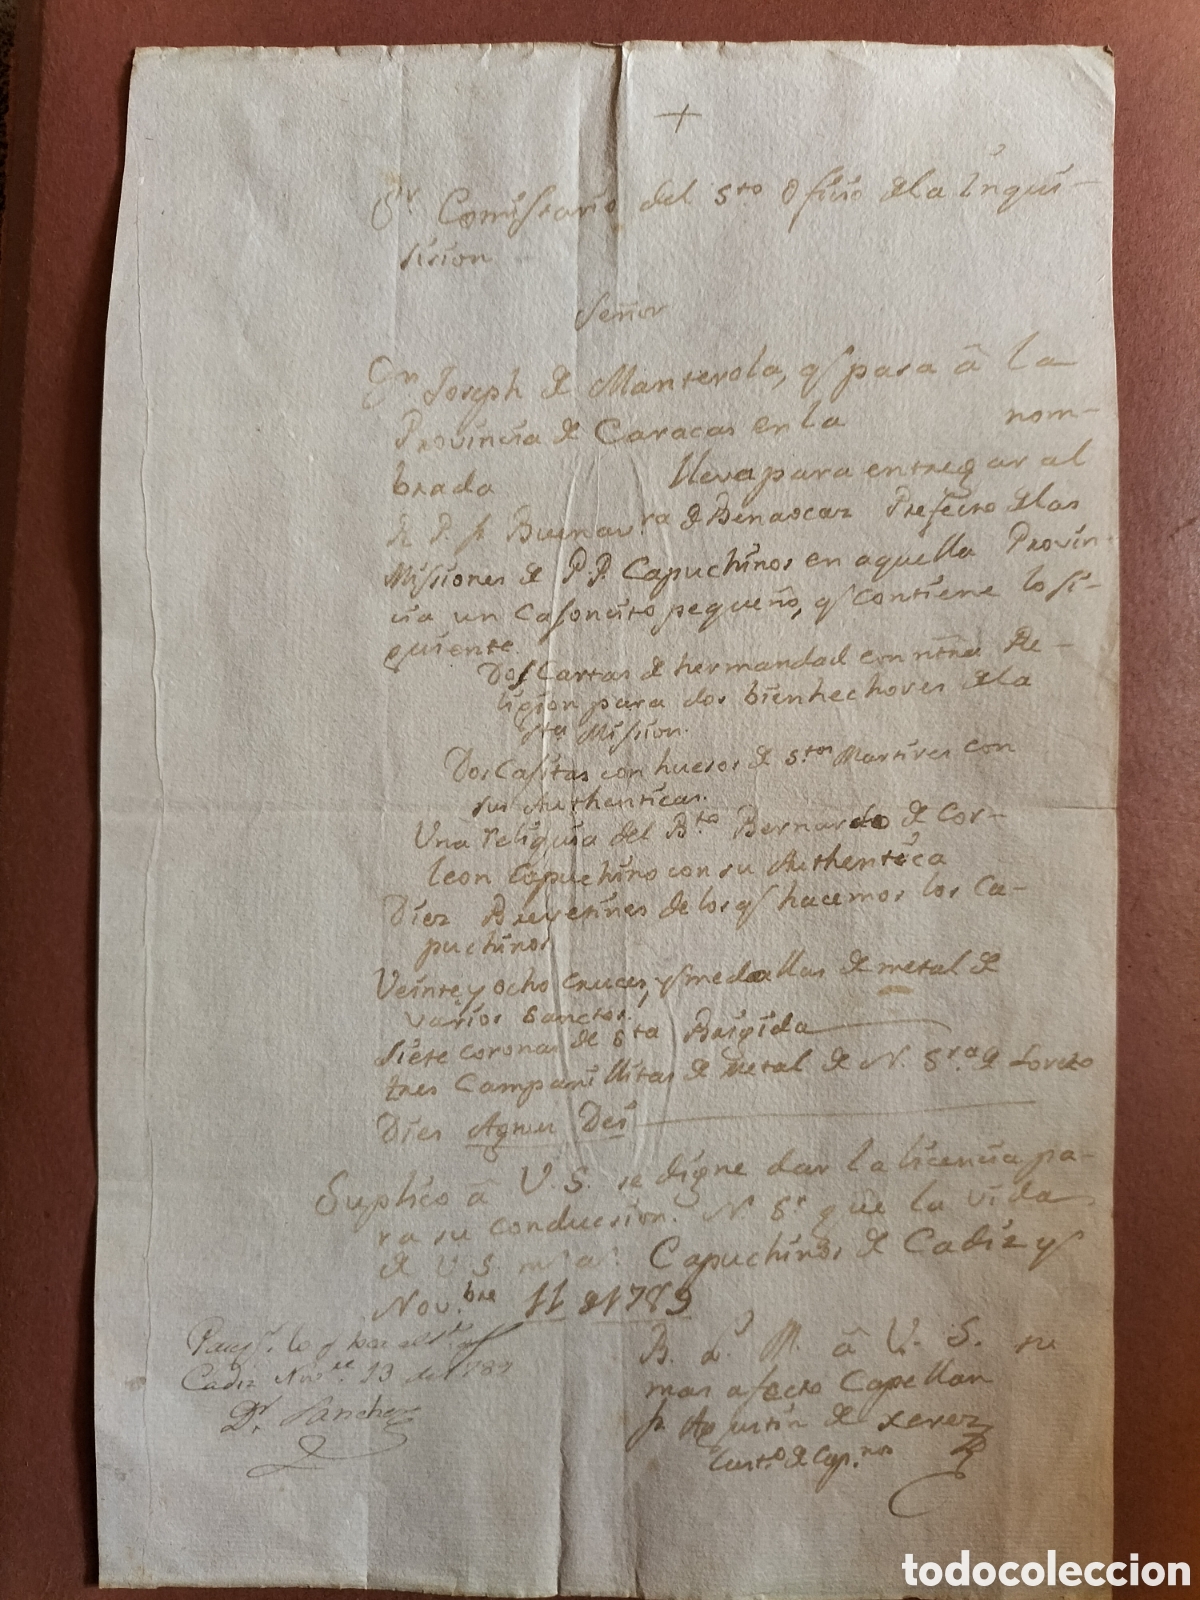 +
Sr. Comissario del Sto Oficio de la Inqui-
sision
Señor
Dn. Joseph de Manterola, q pasa â la
Provincia de Caracas en la nom-
brada lleva para entregar al
R. P. fr Buenavra de Benaocaz Prefecto de las
Missiones de P.P. Capuchinos en aquella Provin-
cia un Caxoncito pequeño, q contiene lo si-
guiente.
Dos Cartas de hermandad con ntra Re-
ligion para dos bienhechores de la
sta Mission.
Dos Caxitas con huesos de Stos Martires con
sus Authenticas.
Una reliquia del Bto Bernardo de Cor-
leon Capuchino con su Authentica
Diez Brevetines de los q hacemos los Ca-
puchinos
Veinte y ocho cruces, y medallas de metal de
varios Sanctos.
Siete coronas de Sta Brigida
tres Campanillitas de Metal de N. Sra de Loreto
Dies Agnus Dei
Suplico â V. S. se digne dar la licencia pa-
ra su conducsion. N. Sr gue la vida
de V S ms as. Capuchinos de Cadiz y
Novbre 11 de 1789
B. L. M. â V. S. su
mas afecto Capellan
fr Agustin de Xerez
Cadiz Nove. 13 de 1789
Dr. Sanchez
todocoleccion